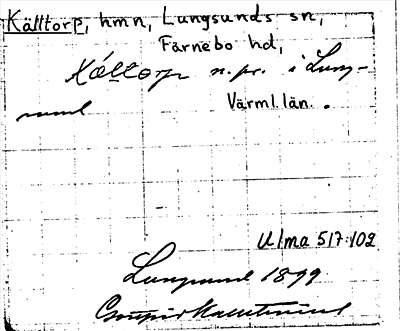 Källtorp, hmn, Lungsunds sn,
Färnebo hd,
Kältorp n.pr. i Lung-
sund Värml. län.
Ulma 517:102
Lungsund 1899